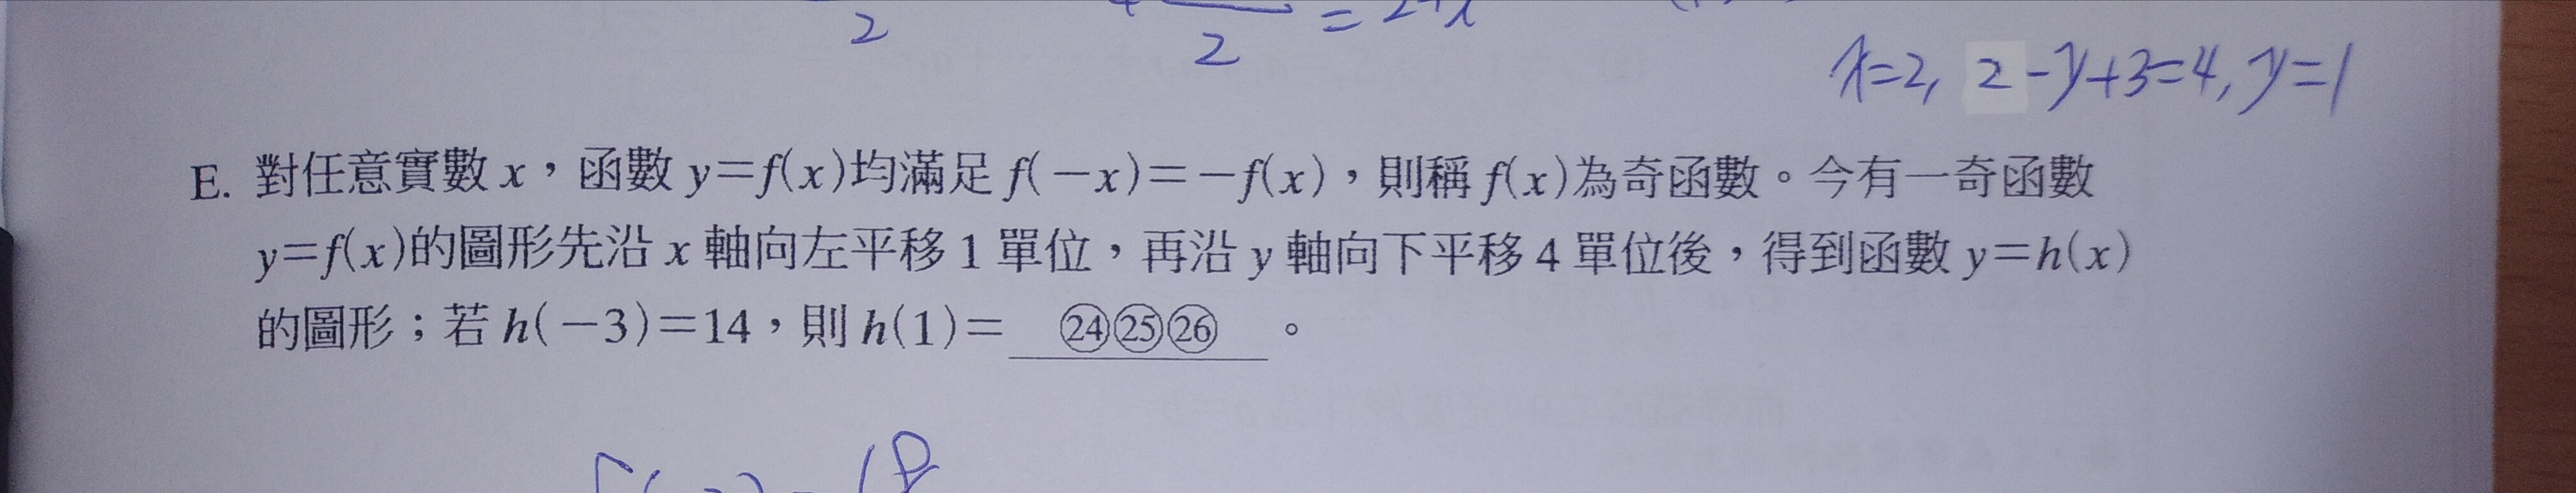 2
2
x=2, 2-y+3=4, y=1
E. 對任意實數 x，函數 y=f(x)均滿足 f(-x)=-f(x)，則稱 f(x)為奇函數。今有一奇函數
y=f(x)的圖形先沿 x 軸向左平移 1 單位，再沿 y 軸向下平移 4 單位後，得到函數 y=h(x)
的圖形；若 h(-3)=14，則 h(1)= ㉔㉕㉖ 。